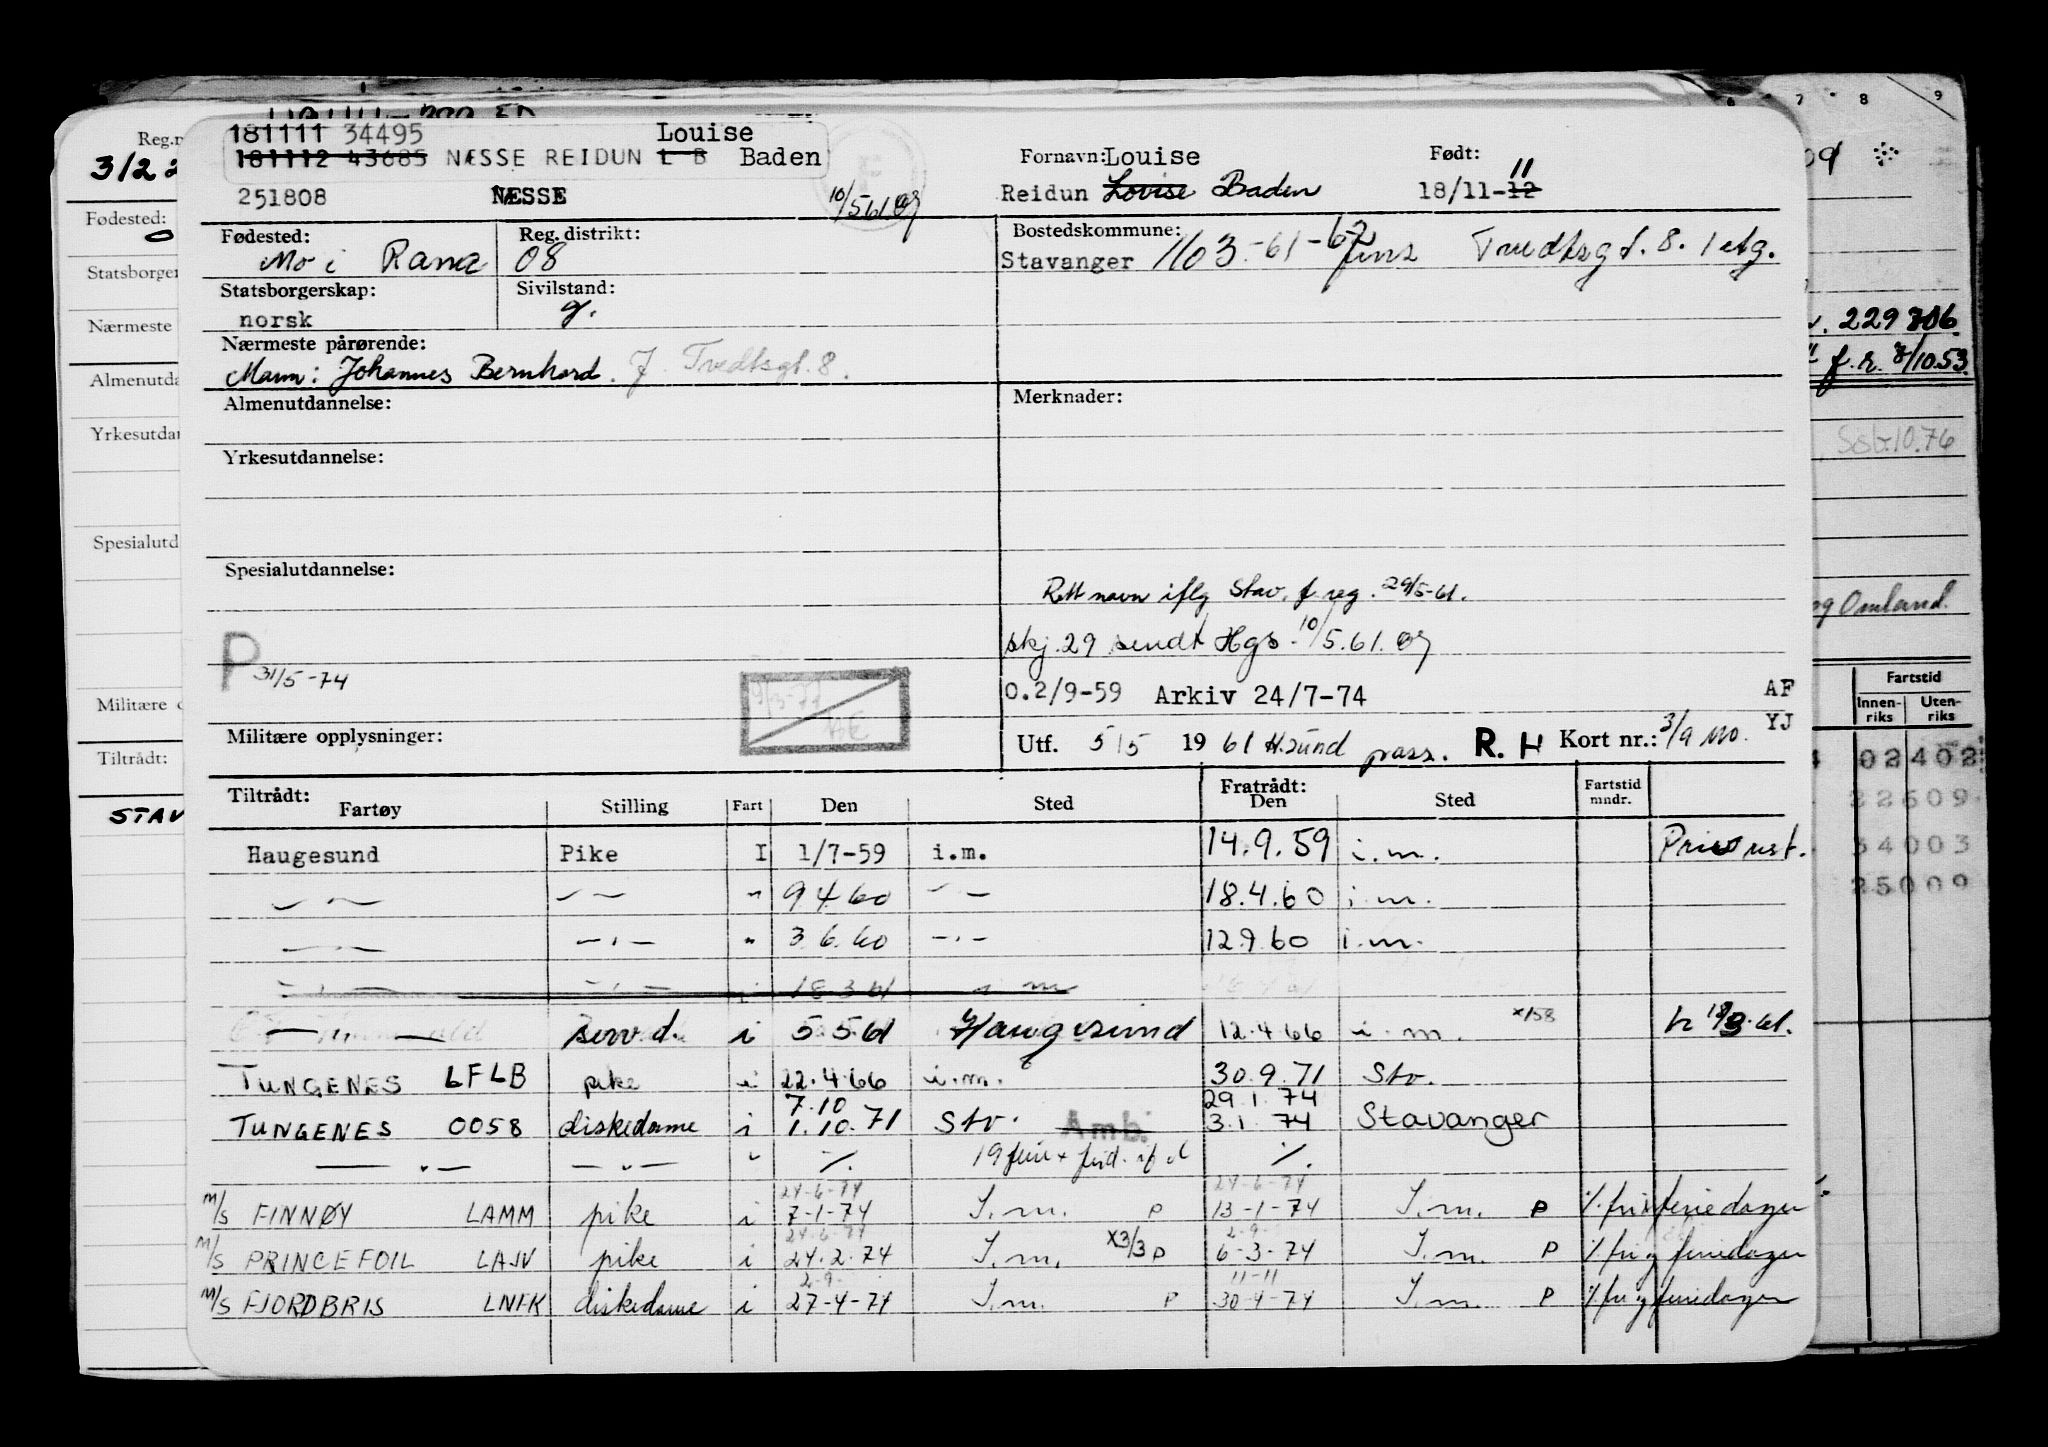 181111 34495 Louise
181112 43685 NÆSSE REIDUN L B Baden
251808 NÆSSE 10/5.61.
Fornavn: Louise
Reidun Louise Baden
Født: 11
18/11-12
Fødested: Mo i Rana
Reg. distrikt: 08
Bostedskommune:
Stavanger 1103-61-62 Tvedtsgt. 8. 1 etg.
Statsborgerskap: norsk
Sivilstand: g.
Nærmeste pårørende:
Mann: Johannes Bernhard. J. Tvedtsgt. 8.
Almenutdannelse:
Merknader:
Yrkesutdannelse:
Spesialutdannelse:
Rett navn iflg Stav. f.reg. 29/5-61.
skj. 29 sendt Hgs. 10/5.61.
P 31/5-74
0.2/9-59 Arkiv 24/7-74 AF
YJ
Militære opplysninger:
Utf. 5/5 1961 H.sund pass. R. H Kort nr.: 3/9 mo.
Tiltrådt: Fratrådt:
Fartøy Stilling Fart Den Sted Den Sted Fartstid mndr.
Haugesund Pike I 1/7-59 i.m. 14.9.59 i.m.
— " — — " — " 9.4.60 — " — 18.4.60 i.m.
— " — — " — " 3.6.60 — " — 12.9.60 i.m.
— " — — " — i 18.3.61 i m
— " — serv.d. i 5.5.61 Haugesund 12.4.66 i.m. x158 18/3.61.
TUNGENES LFLB pike i 22.4.66 i.m. 30.9.71 Stv.
7.10 29.1.74
TUNGENES 0058 diskedame i 1.10.71 Stv. Amb. 3.1.74 Stavanger
— " — — " — " ./. 19 ferie + ./.
24-6-74 24-6-74
M/S FINNØY LAMM pike i 7-1-74 I.m. P 13-1-74 I.m. P feriedager
24.6.74 2-9-
M/S PRINCEFOIL LAJV pike i 24.2.74 I.m. x3/3 P 6-3-74 I.m. P ./. fri og feriedager
2-9- 11-11
M/S FJORDBRIS LNFK diskedame i 27-4-74 I.m. P 30-4-74 I.m. P ./. fri og feriedager
Reg.n
3/22
Fødested:
Statsborger
Nærmeste
Almenutda
Yrkesutdan
Spesialutd
Militære o
Tiltrådt:
STAV
7 8 9
229306.
f.r. 8/10.53.
10.76
og Omland.
Fartstid
Innenriks Utenriks
02402
22609
34003
25009